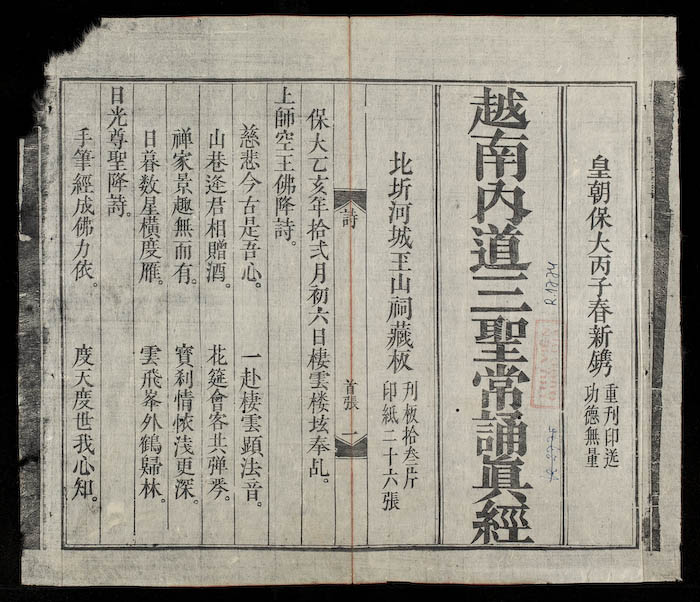 皇朝保大丙子春新鐫
重刊印送
功德無量
R.1774
越南內道三聖常誦眞經
北圻河城玉山祠藏板
刊板拾叁片
印紙二十六張
詩
首張 一
保大乙亥年拾弍月初六日棲雲楼坛奉乩。
上師空王佛降詩。
慈悲今古是吾心。 一赴棲雲顕法音。
山巷逢君相贈酒。 花筵會客共弹琴。
禅家景趣無而有。 寳刹情懐浅更深。
日暮数星橫度雁。 雲飛峯外鶴歸林。
日光尊聖降詩。
手筆經成佛力依。 度天度世我心知。